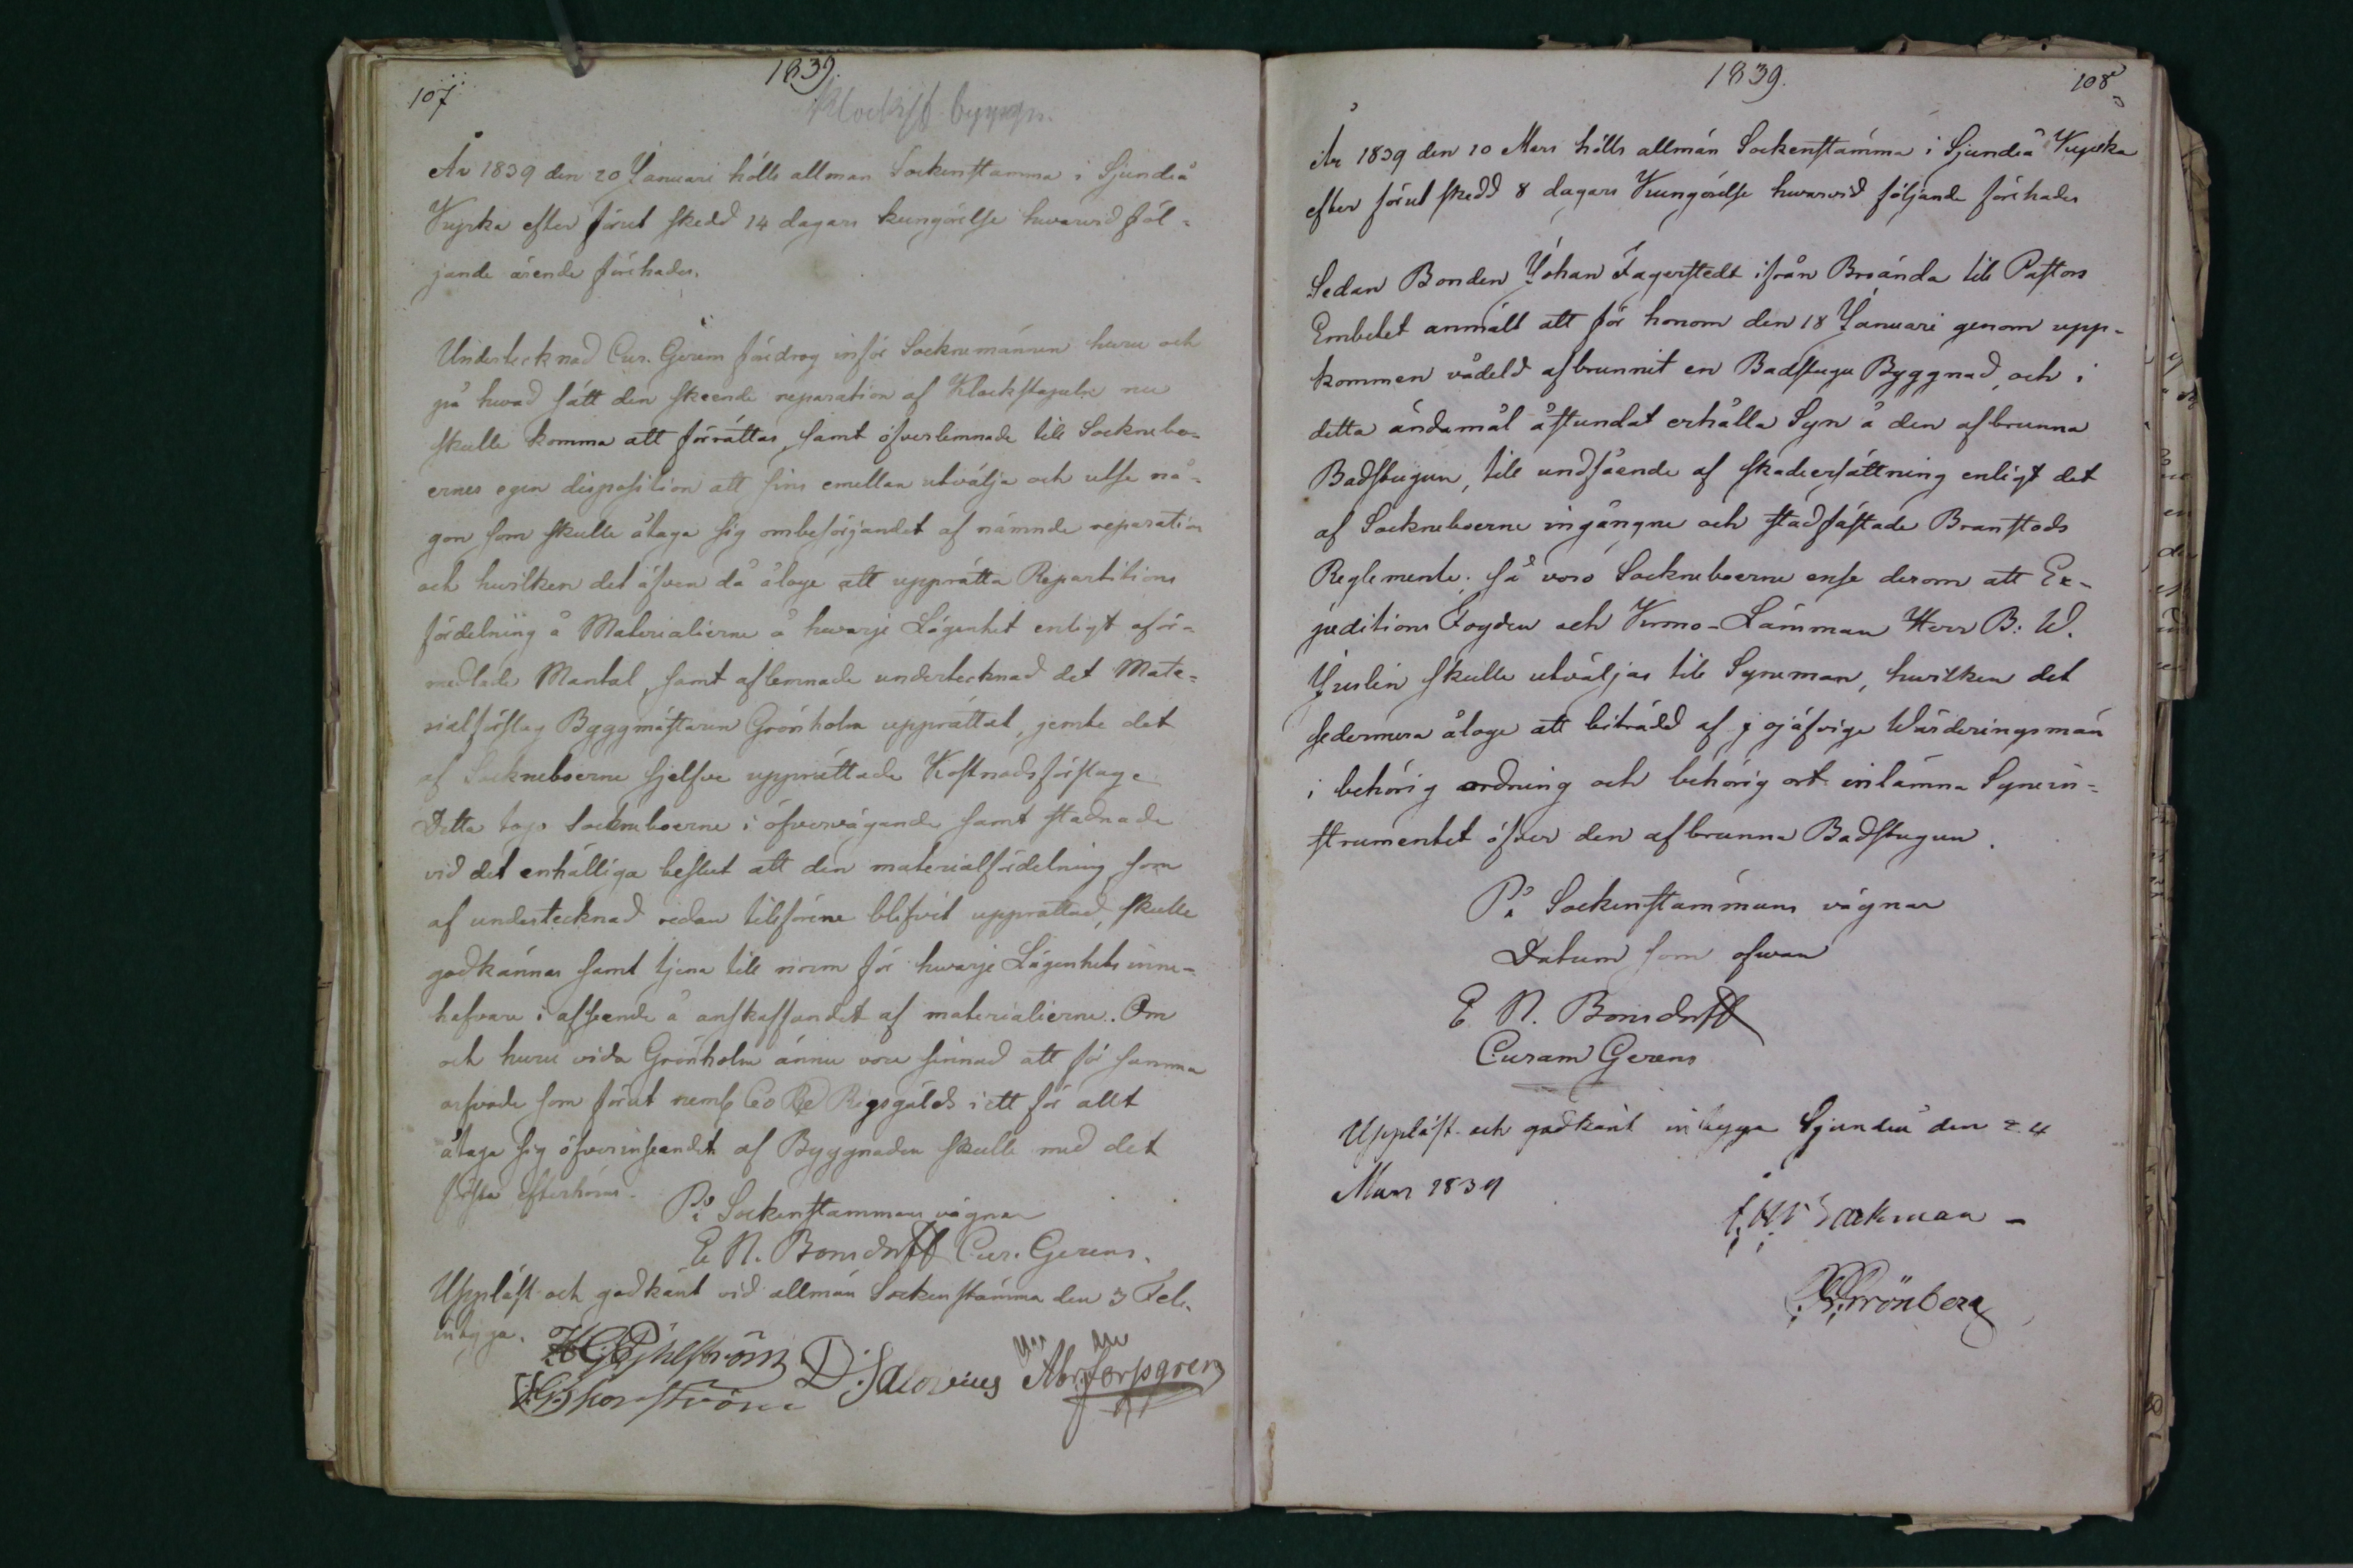 107
1839.
År 1839 den 20 Januari hölls allmän Sockenstämma i Sjundeå
Kyrka efter förut skedd 14 dagars kungörelse hwarvid föl-
jande ärende förehades.
Undertecknad Cur. Gerens föredrog inför Socknemännen huru och
på hwad sätt den skeende reparation af Klockstapeln nu
skulle komma att förrättas, samt öfverlemnade till Sockneboe-
ernes egen disposition att sins emellan utvälja och utse nå-
gon som skulle åtaga sig ombesörjandet af nämnde reparation
och hwilken det äfven då ålåge att upprätta Repartitions
fördelning å Materialierne å hwarje Lägenhet enligt oför-
medlade Mantal, samt aflemnade undertecknad det Mate-
rialförslag Byggmästaren Grönholm upprättat, jemte det
af Sockneboerne sjelfve upprättade Kostnadsförslag.
Detta togo Sockneboerne i öfvervägande samt stadnade
vid det enhälliga beslut att den materialfördelning, som
af undertecknad redan tilförene blifvit upprättad, skulle
godkännas samt tjena till norm för hwarje Lägenhets inne-
hafvare i afseende å anskaffandet af materialierne. Om
och huru vida Grönholm ännu vore sinnad att för samma
arfvode som förut neml. 60 Rd Riksgälds i ett för allt
åtaga sig öfverinseendet af Byggnaden skulle med det
första efterhöras.
På Sockenstämmans vägnar
E. N. Bonsdorff Cur. Gerens.
Uppläst och godkänt vid allmän Sockenstämma den 3 Feb.
intyga.
1839.
108
År 1839 den 10 Mars hölls allmän Sockenstämma i Sjundeå Kyrka
efter förut skedd 8 dagars Kungörelse hwarvid följande förehades
Sedan Bonden Johan Fagerstedt ifrån Broända till Pastors
Embetet anmält att för honom den 18 Januari genom upp-
kommen vådeld afbrunnit en Badstugu Byggnad, och i
detta ändamål åstundat erhålla Syn å den afbrunna
Badstugun, till undfående af skadeersättning enligt det
af Sockneboerne ingångne och stadfästade Branstods
Reglemente; så voro Sockneboerne ense derom att Ex-
peditions Fogden och Krono-Länsman Herr B: W.
Juslin skulle utväljas till Syneman, hwilken det
sedermera ålåge att biträdd af ojäfvige Wärderingsmän
i behörig ordning och behörig ort inlämna Synein-
strumentet öfver den afbrunna Badstugun.
På Sockenstämmans vägnar
Datum som ofvan
E. N. Bonsdorff
Curam Gerens
Uppläst och godkänt intyga Sjundeå den 24
Mars 1839